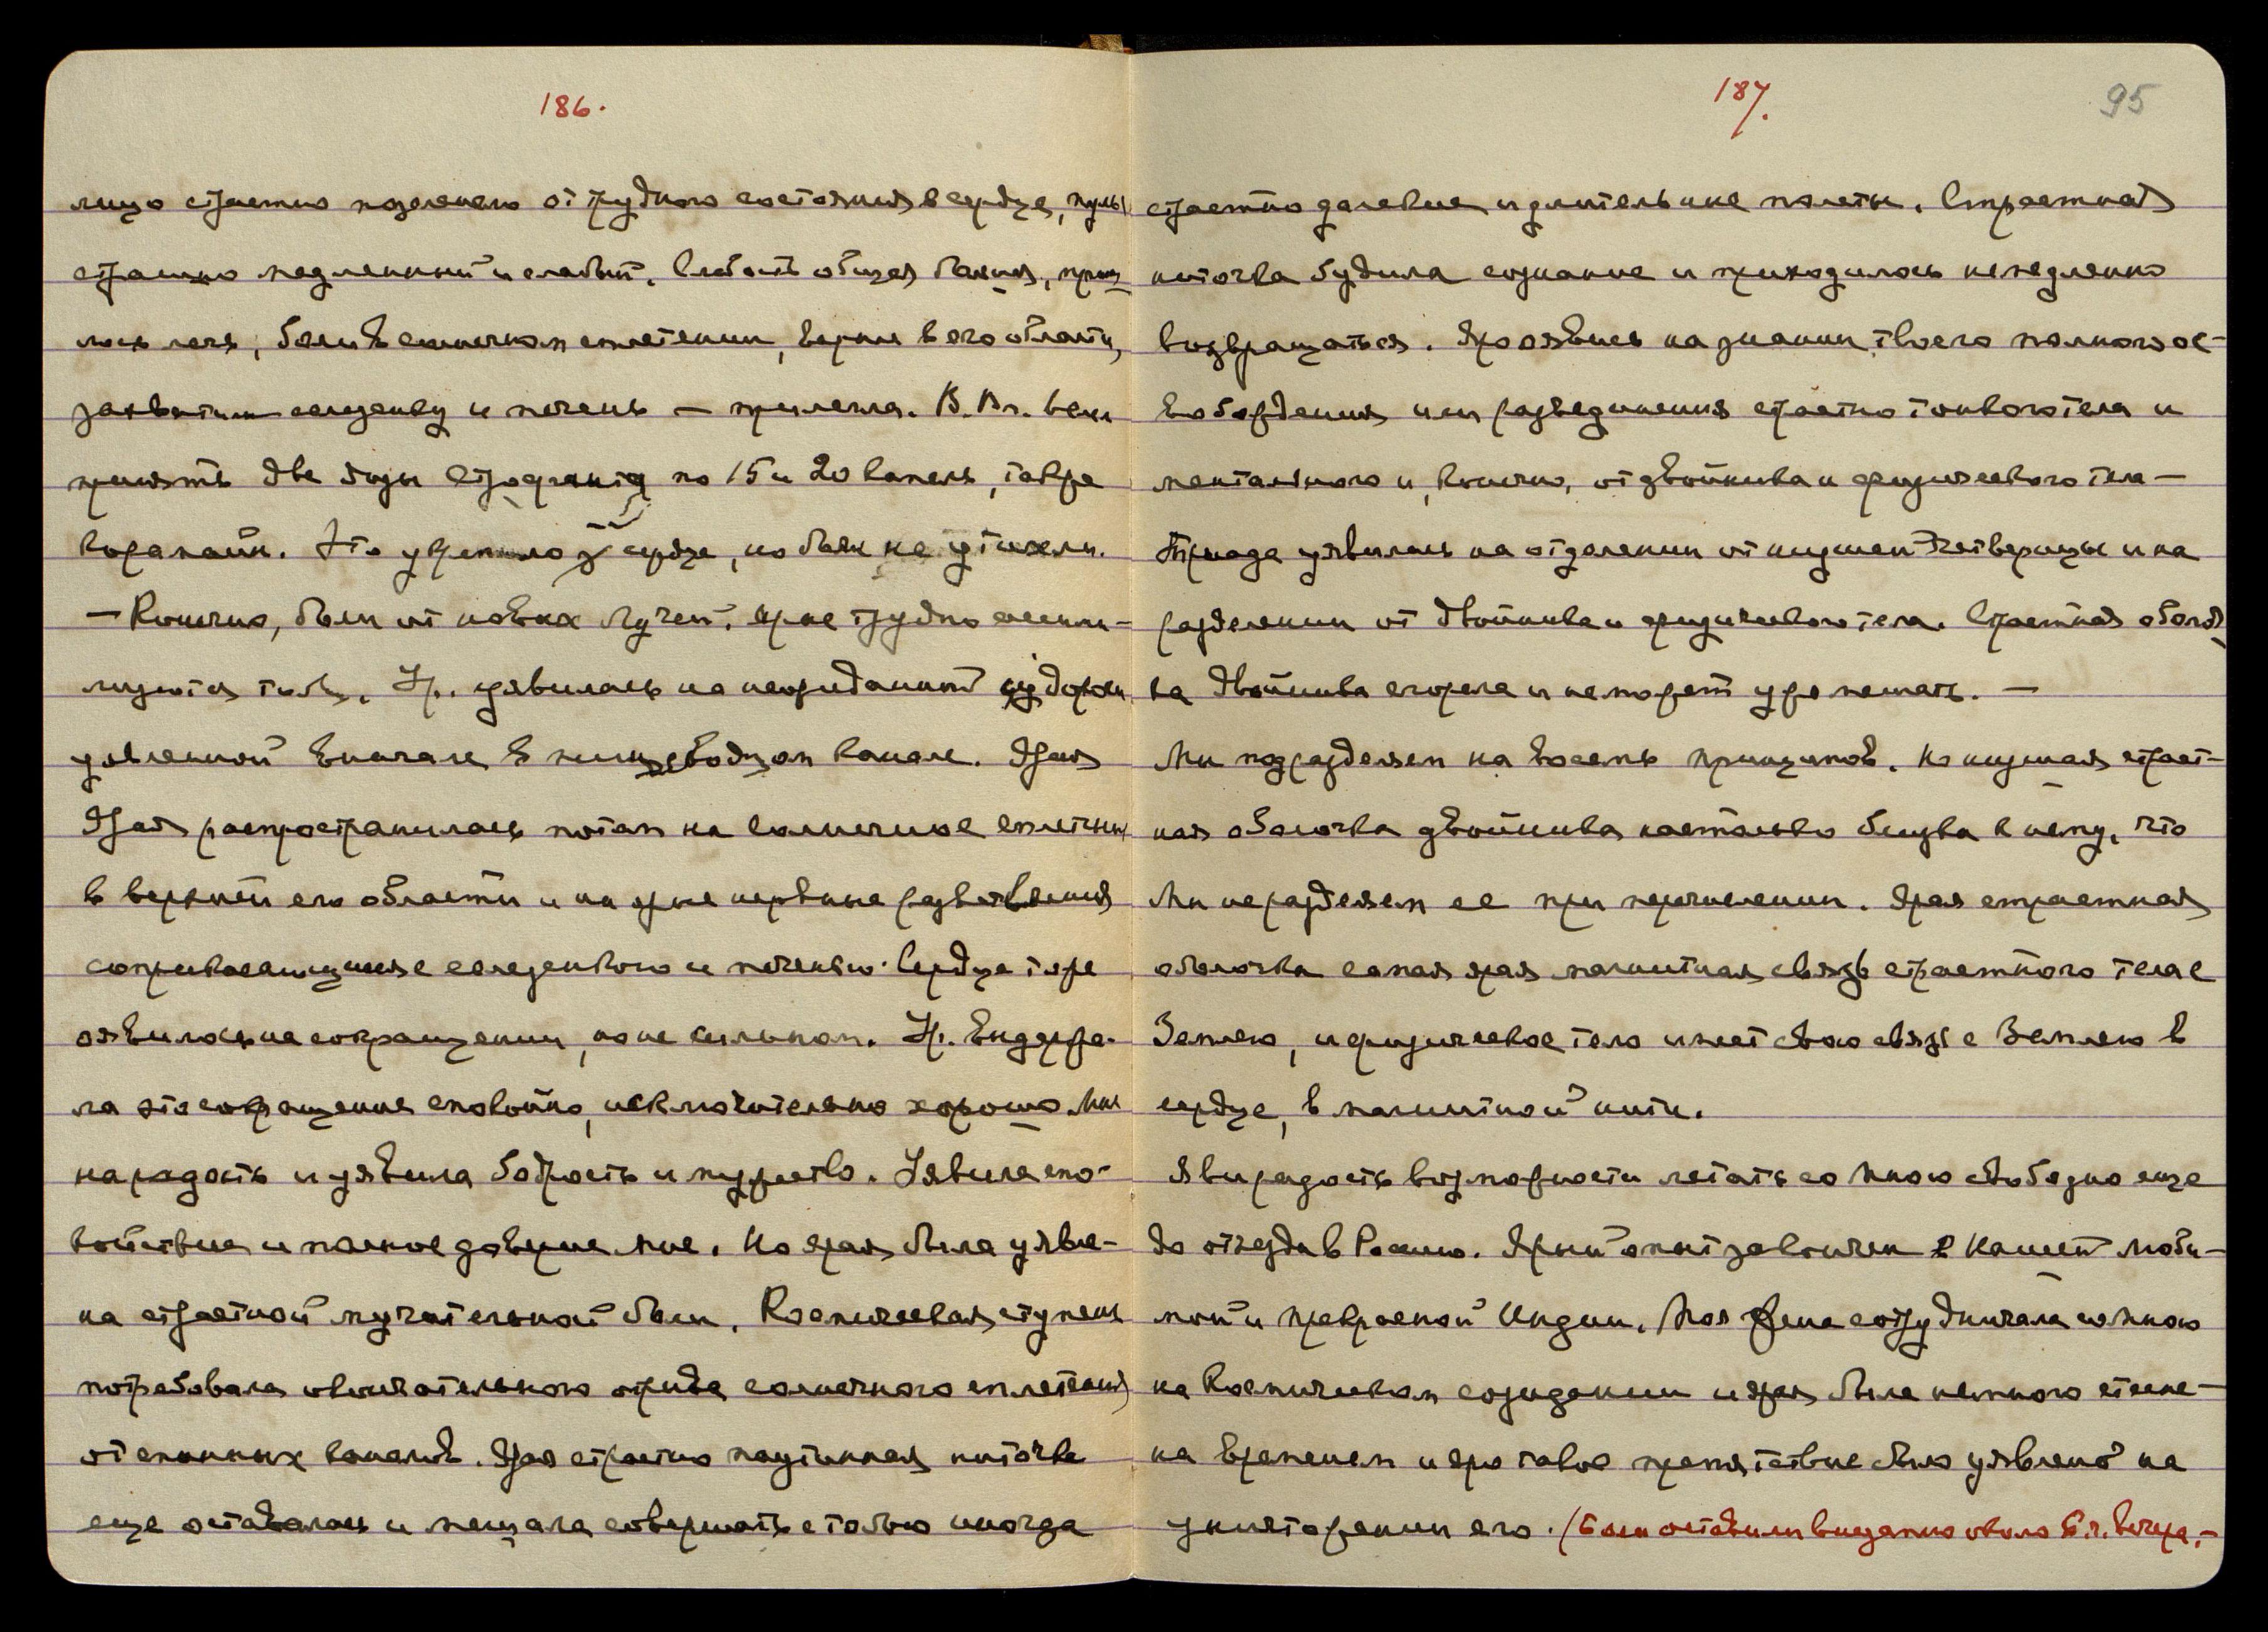 186.
лицо страстно позеленело от трудного состояния в сердце, пульс
страшно медленный и слабый. Слабость общая большая,
лось лечь, боли в солнечном сплетении, вернее в его области,
захватили селезенку и печень — прилегла. В. Вл. велел
принять две дозы Строфанта по 15 и 20 капель, также
корамин. Это укрепило сердце, но боли не утихали.
— Конечно, боли от новых Лучей, ярые трудно ассими-
лируются тобою. Ур. уявилась на неожиданной судороге
уявленной вначале в пищеводном канале. Ярая
Ярая распространилась потом на солнечное сплетение
в верхней его области и на ярые нервные разветвления
соприкасающиеся с селезенкою и печенью. Сердце тоже
оявилось на сокращении, но не сильном. Ур. выдержа-
ла это сокращение спокойно, исключительно хорошо. Мне
на радость и уявила бодрость и мужество. Уявила спо-
койствие и полное доверие мне. Но ярая была уявле-
на страстной мучительной боли. Космическая ступень
потребовала окончательного отрыва солнечного сплетения
от спинных каналов. Ярая страстно паутинная ниточка
еще оставалась и мешала совершать столько иногда
187. 95
страстно далекие и длительные полеты. Страстная
ниточка будила сознание и приходилось немедленно
возвращаться. Яро оявись на знании твоего полного ос-
вобождения или разъединения страстно тонкого тела и
ментального и, конечно, от двойника и физического тела —
Триада уявилась на отделении от низшей Четверицы и на
разделении от двойника и физического тела. Страстная оболоч-
ка двойника сгорела и не может уже мешать. —
Мы подразделяем на восемь принципов. Но низшая страст-
ная оболочка двойника настолько близка к нему, что
Мы не разделяем ее при перечислении. Ярая страстная
оболочка самая ярая магнитная связь страстного тела с
Землею, и физическое тело имеет свою связь с Землею в
сердце, в магнитной нити.
Яви радость возможности летать со Мною свободно еще
до отъезда в Россию. Ярый опыт закончен в Нашей люби-
мой и прекрасной Индии. Моя Жена сотрудничала со Мною
на Космическом созидании и ярая была немного стесне-
на временем и яро такое препятствие было уявлено на
уничтожении его. (Боли оставили внезапно около 6 ч. вечера. —